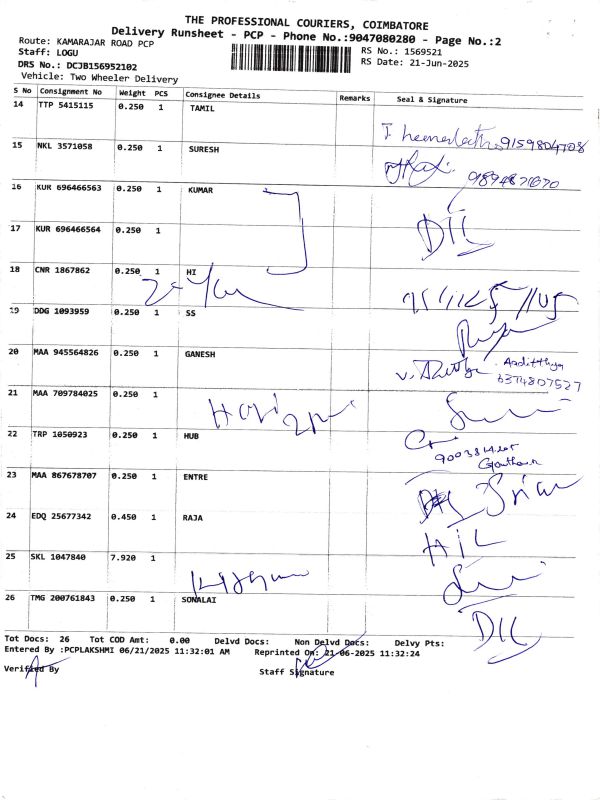 THE PROFESSIONAL COURIERS, COIMBATORE
Delivery Runsheet - PCP - Phone No.:9047080280 - Page No.:2
Route: KAMARAJAR ROAD PCP
RS No.: 1569521
Staff: LOGU
RS Date: 21-Jun-2025
DRS No.: DCJB156952102
Vehicle: Two Wheeler Delivery
S No Consignment No Weight PCS Consignee Details Remarks Seal & Signature
14 TTP 5415115 0.250 1 TAMIL
9159804708
15 NKL 3571058 0.250 1 SURESH
16 KUR 696466563 0.250 1 KUMAR
17 KUR 696466564 0.250 1
DIL
18 CNR 1867862 0.250 1 HI
19 DDG 1093959 0.250 1 SS
20 MAA 945564826 0.250 1 GANESH
Aaditthya
6374807527
21 MAA 709784025 0.250 1
22 TRP 1050923 0.250 1 HUB
23 MAA 867678707 0.250 1 ENTRE
24 EDQ 25677342 0.450 1 RAJA
25 SKL 1047840 7.920 1
26 TMG 200761843 0.250 1 SONALAI
DIL
Tot Docs: 26 Tot COD Amt: 0.00 Delvd Docs: Non Delvd Docs: Delvy Pts:
Entered By :PCPLAKSHMI 06/21/2025 11:32:01 AM Reprinted On: 21-06-2025 11:32:24
Verified By
Staff Signature